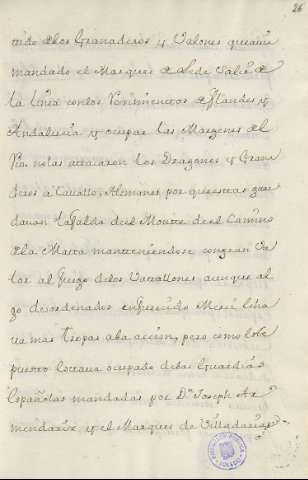 26
tido de los Granaderos y Valones que avia
mandado el Marques de Lede salir de
la linea con los Regimientos de Flandes y
Andalucia y ocupar las Margenes del
Rio, no las atacaron los Dragones y Grana
deros a Cavallo, Alemanes por que estas guar
davan la falda del Monte de el Camino
de la Marta manteniendose con gran va
lor al fuego de los Vattallones aunque al
go desordenados
mas tropas a la accion, pero como todo
puesto estava ocupado de las Guardias
Españolas mandadas por Dn. Joseph Ar
mendariz, y el Marques de Villadarias